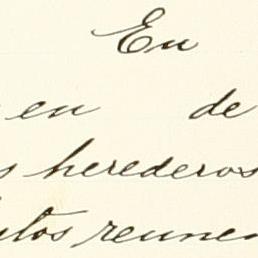 En
en de
s herederos
reunen